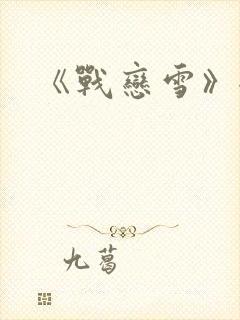 《戰戀雪》
九葛